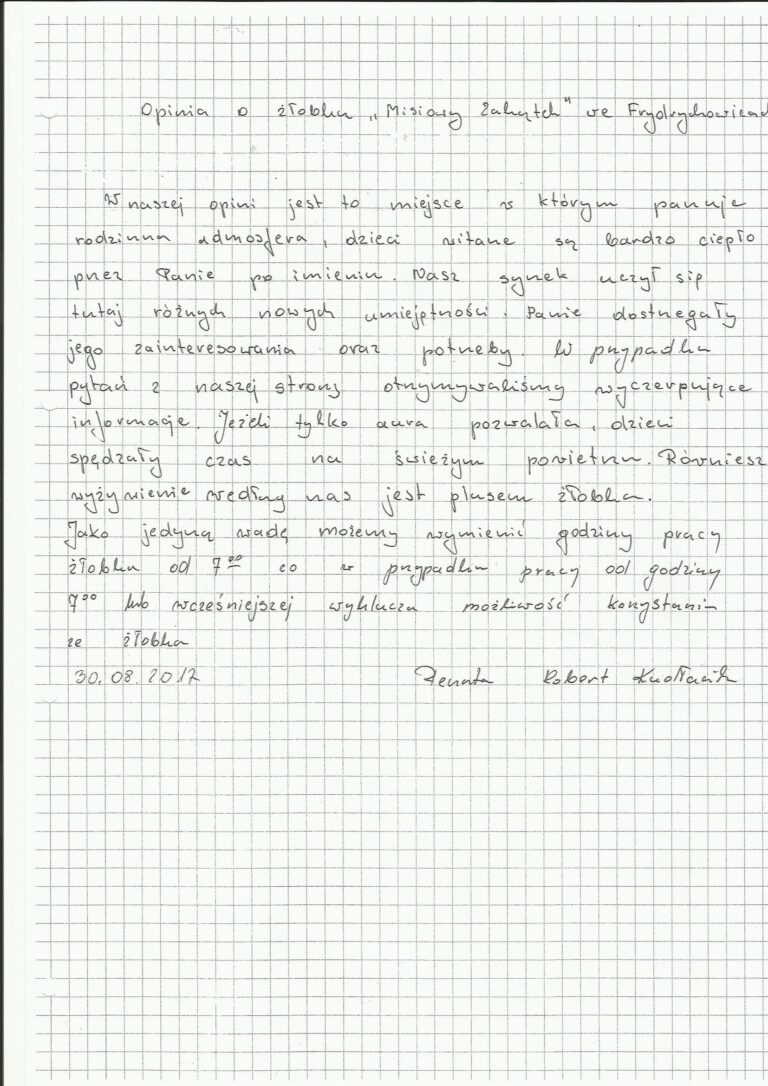 Opinia o żłobku „Misiowy Zakątek" we Frydrychowicach
W naszej opini jest to miejsce w którym panuje
rodzinna admosfera, dzieci witane są bardzo ciepło
przez Panie po imieniu. Nasz synek uczył się
tutaj różnych nowych umiejętności. Panie dostrzegały
jego zainteresowania oraz potrzeby W przypadku
pytań z naszej strony otrzymywaliśmy wyczerpujące
informacje. Jeżeli tylko aura pozwalała, dzieci
spędzały czas na świeżym powietrzu. Równiesz
wyżywienie według nas jest plusem żłobka.
Jako jedyną wadę możemy wymienić godziny pracy
żłobka od 7⁰⁰ co w przypadku pracy od godziny
7⁰⁰ lub wcześniejszej wyklucza możliwość korzystania
ze żłobka
30.08.2017 Renata Robert